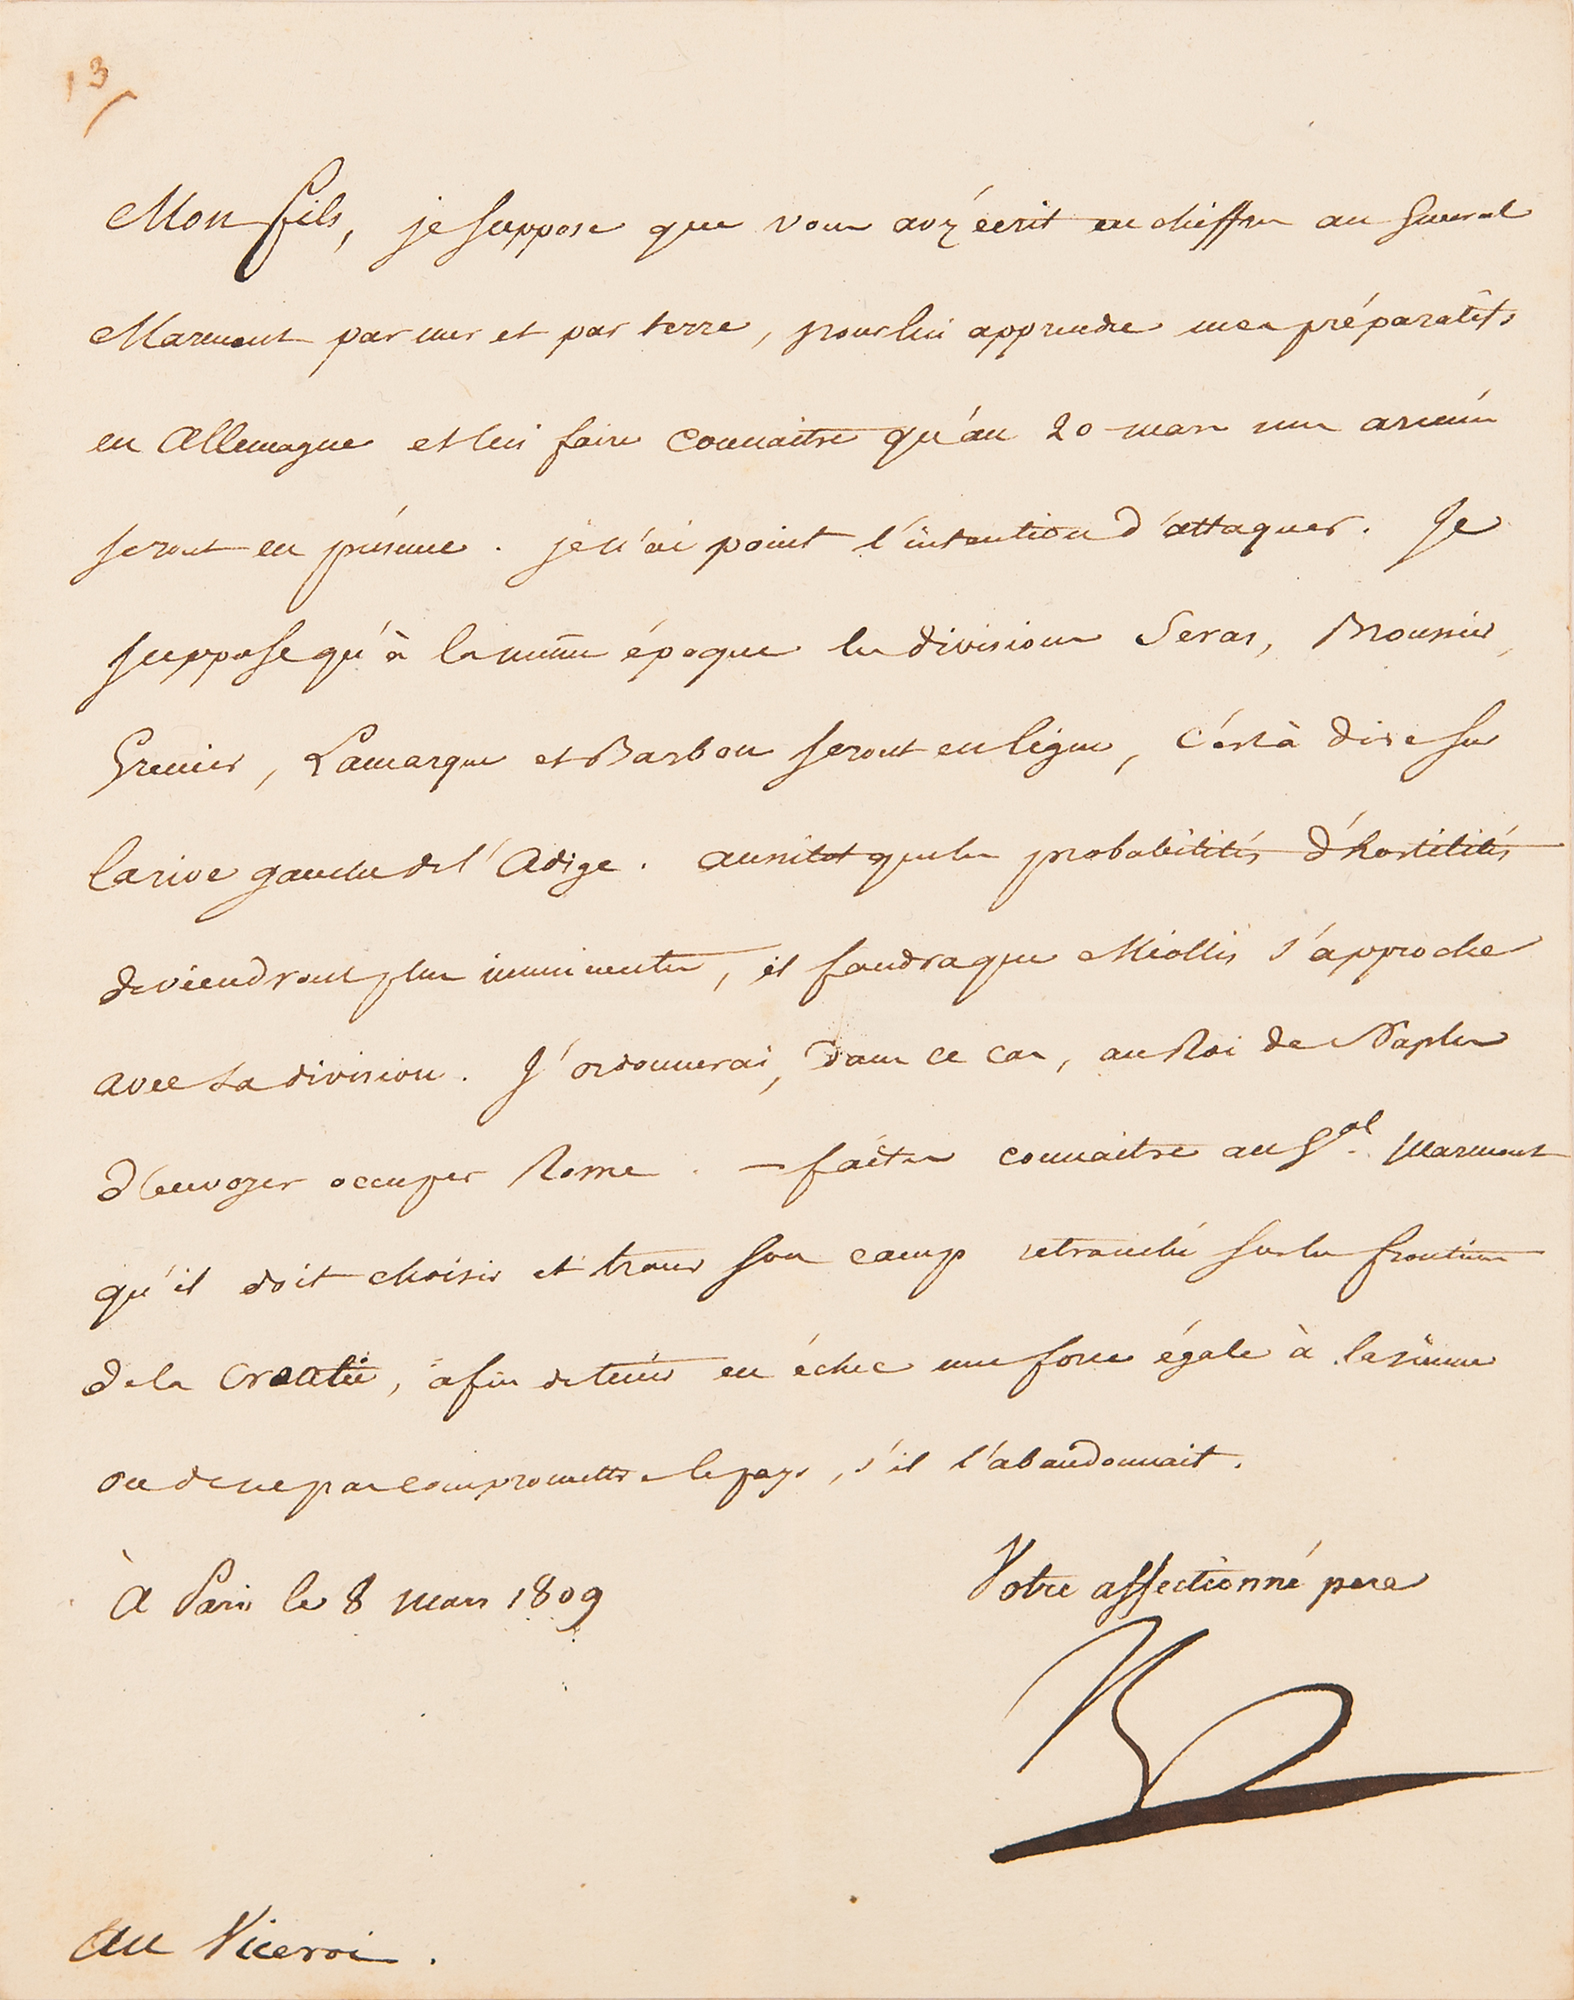 13
Mon fils, je suppose que vous avéz écrit en chiffres au Général
Marmont par mer et par terre, pour lui apprendre mes préparatifs
en Allemagne et lui faire connaitre qu'au 20 mars mes armées
seront en présence. je n'ai point l'intention d'attaquer. Je
suppose qu'à la même époque les divisions Seras, Broussier,
Grenier, Lamarque et Barbou seront en ligne, c'est à dire sur
la rive gauche de l'Adige. aussitot que les probabilités d'hostilités
deviendront plus imminentes, il faudra que Miollis s'approche
avec sa division. J'ordonnerai, dans ce cas, au Roi de Naples
d'envoyer occuper Rome. — faites connaitre au Gal. Marmont
qu'il doit choisir et tracer son camp retranché sur les frontières
de la Croatie, afin de tenir en échec une force égale à la sienne
ou de ne pas compromettre le pays, s'il l'abandonnait.
À Paris le 8 mars 1809
Votre affectionné pere
au Viceroi.